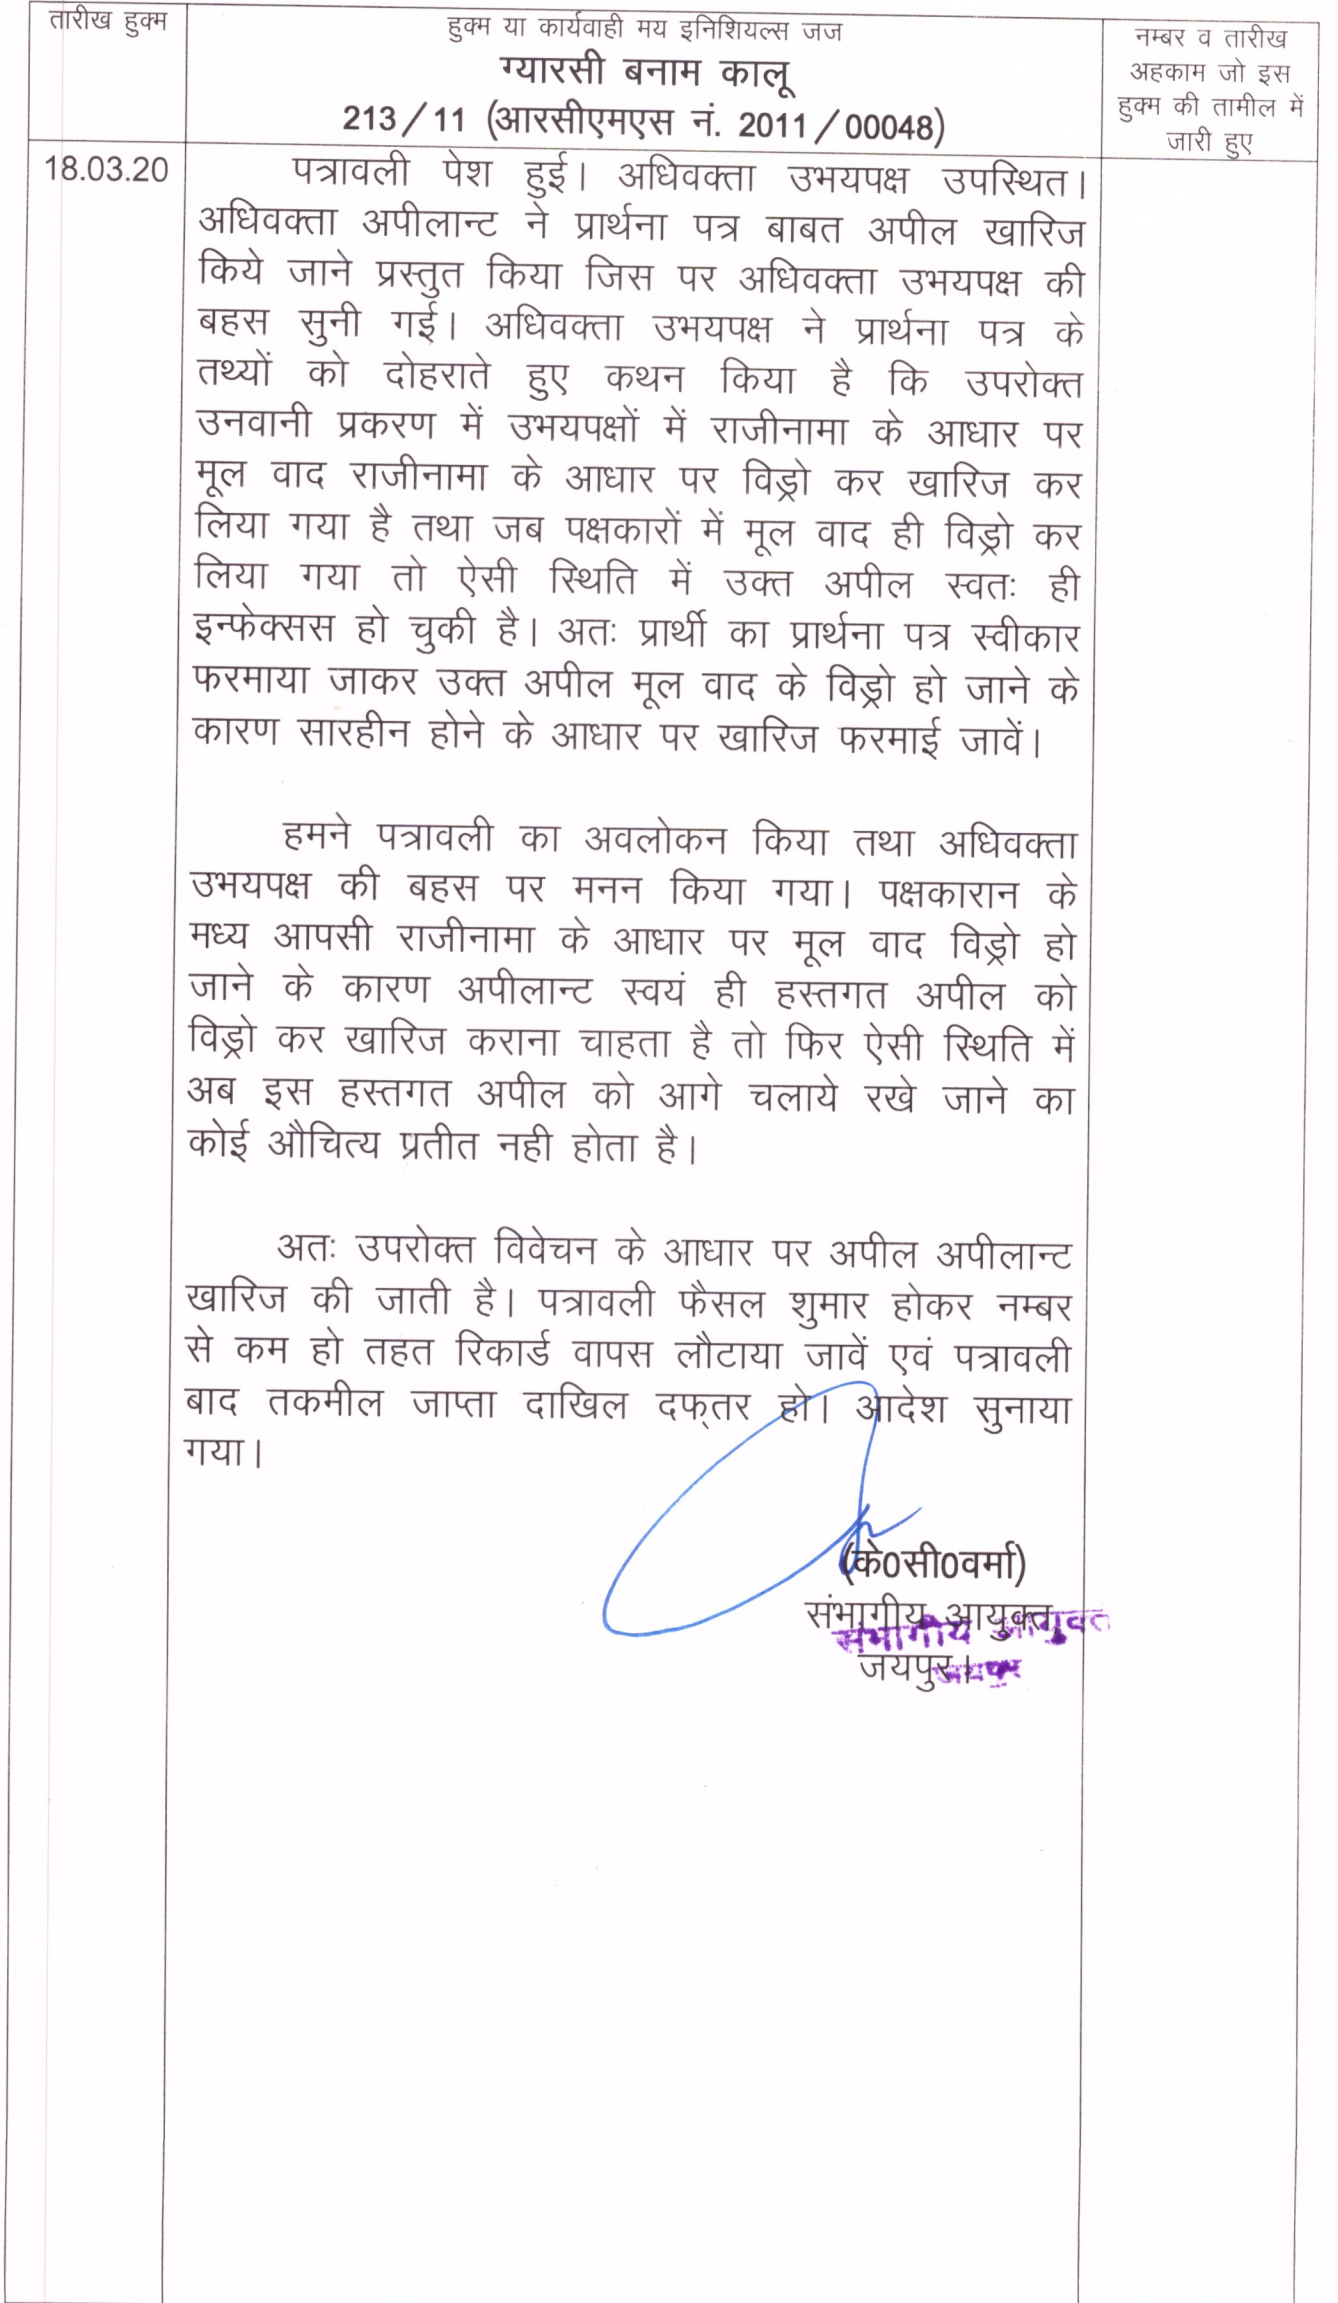 तारीख हुक्म
हुक्म या कार्यवाही मय इनिशियल्स जज
ग्यारसी बनाम कालू
213/11 (आरसीएमएस नं. 2011/00048)
नम्बर व तारीख
अहकाम जो इस
हुक्म की तामील में
जारी हुए
18.03.20
पत्रावली पेश हुई। अधिवक्ता उभयपक्ष उपस्थित।
अधिवक्ता अपीलान्ट ने प्रार्थना पत्र बाबत अपील खारिज
किये जाने प्रस्तुत किया जिस पर अधिवक्ता उभयपक्ष की
बहस सुनी गई। अधिवक्ता उभयपक्ष ने प्रार्थना पत्र के
तथ्यों को दोहराते हुए कथन किया है कि उपरोक्त
उनवानी प्रकरण में उभयपक्षों में राजीनामा के आधार पर
मूल वाद राजीनामा के आधार पर विड्रो कर खारिज कर
लिया गया है तथा जब पक्षकारों में मूल वाद ही विड्रो कर
लिया गया तो ऐसी स्थिति में उक्त अपील स्वतः ही
इन्फेक्सस हो चुकी है। अतः प्रार्थी का प्रार्थना पत्र स्वीकार
फरमाया जाकर उक्त अपील मूल वाद के विड्रो हो जाने के
कारण सारहीन होने के आधार पर खारिज फरमाई जावें।
हमने पत्रावली का अवलोकन किया तथा अधिवक्ता
उभयपक्ष की बहस पर मनन किया गया। पक्षकारान के
मध्य आपसी राजीनामा के आधार पर मूल वाद विड्रो हो
जाने के कारण अपीलान्ट स्वयं ही हस्तगत अपील को
विड्रो कर खारिज कराना चाहता है तो फिर ऐसी स्थिति में
अब इस हस्तगत अपील को आगे चलाये रखे जाने का
कोई औचित्य प्रतीत नही होता है।
अतः उपरोक्त विवेचन के आधार पर अपील अपीलान्ट
खारिज की जाती है। पत्रावली फैसल शुमार होकर नम्बर
से कम हो तहत रिकार्ड वापस लौटाया जावें एवं पत्रावली
बाद तकमील जाप्ता दाखिल दफ्तर हो। आदेश सुनाया
गया।
(के0सी0वर्मा)
संभागीय आयुक्त,
संभागीय आयुक्त
जयपुर।
जयपुर